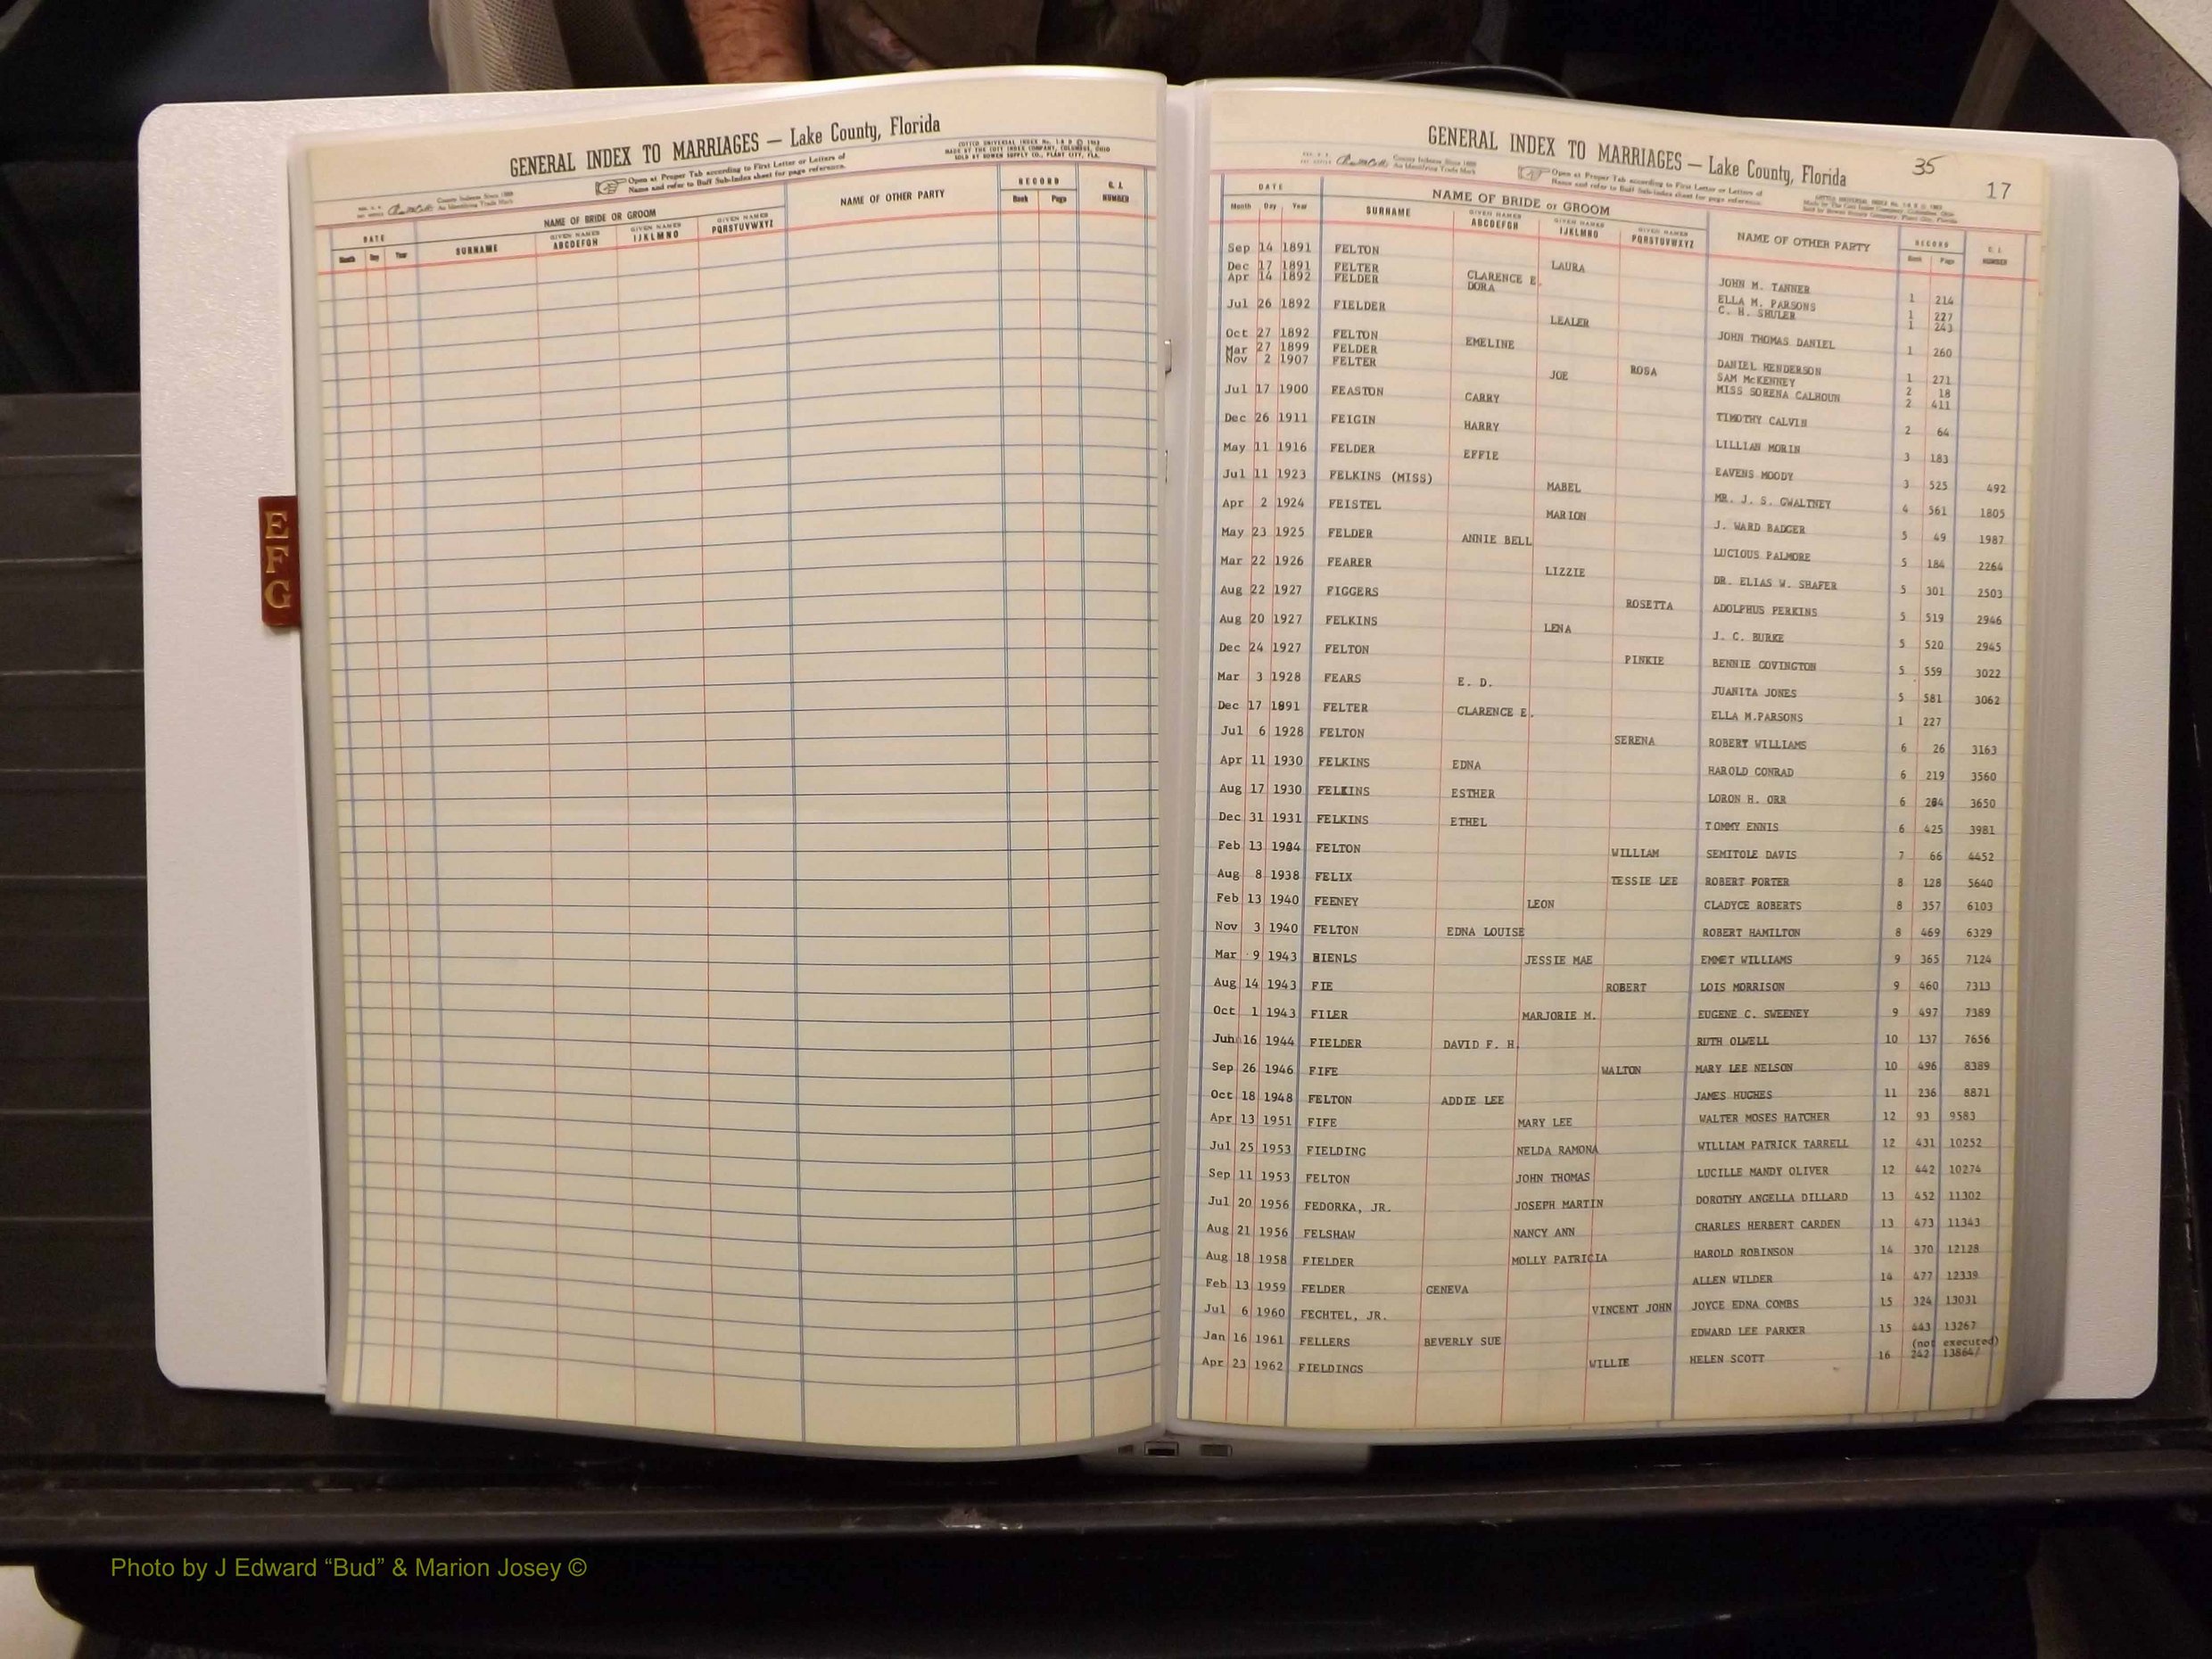 E
F
G
GENERAL INDEX TO MARRIAGES — Lake County, Florida
COTTED UNIVERSAL INDEX
MADE BY THE COTT INDEX COMPANY, COLUMBUS, OHIO
SOLD BY BOWEN SUPPLY CO., PLANT CITY, FLA.
County Indexes Since 1888
An Identifying Trade Mark
Open at Proper Tab according to First Letter or Letters of
Name and refer to Buff Sub-Index sheet for page reference.
DATE NAME OF BRIDE OR GROOM NAME OF OTHER PARTY RECORD G. I. NUMBER
Month Day Year SURNAME GIVEN NAMES ABCDEFGH GIVEN NAMES IJKLMNO GIVEN NAMES PQRSTUVWXYZ Book Page
GENERAL INDEX TO MARRIAGES — Lake County, Florida
35
17
County Indexes Since 1888
An Identifying Trade Mark
Open at Proper Tab according to First Letter or Letters of
Name and refer to Buff Sub-Index sheet for page reference.
DATE NAME OF BRIDE or GROOM NAME OF OTHER PARTY RECORD G. I. NUMBER
Month Day Year SURNAME GIVEN NAMES ABCDEFGH GIVEN NAMES IJKLMNO GIVEN NAMES PQRSTUVWXYZ Book Page
Sep 14 1891 FELTON LAURA JOHN M. TANNER 1 214
Dec 17 1891 FELTER CLARENCE E. ELLA M. PARSONS 1 227
Apr 14 1892 FELDER DORA C. H. SHULER 1 243
Jul 26 1892 FIELDER LEALER JOHN THOMAS DANIEL 1 260
Oct 27 1892 FELTON EMELINE DANIEL HENDERSON 1 271
Mar 27 1899 FELDER ROSA SAM McKENNEY 2 18
Nov 2 1907 FELTER JOE MISS SORENA CALHOUN 2 411
Jul 17 1900 FEASTON CARRY TIMOTHY CALVIN 2 64
Dec 26 1911 FEIGIN HARRY LILLIAN MORIN 3 183
May 11 1916 FELDER EFFIE EAVENS MOODY 3 525 492
Jul 11 1923 FELKINS (MISS) MABEL MR. J. S. GWALTNEY 4 561 1805
Apr 2 1924 FEISTEL MARION J. WARD BADGER 5 49 1987
May 23 1925 FELDER ANNIE BELL LUCIOUS PALMORE 5 184 2264
Mar 22 1926 FEARER LIZZIE DR. ELIAS W. SHAFER 5 301 2503
Aug 22 1927 FIGGERS ROSETTA ADOLPHUS PERKINS 5 519 2946
Aug 20 1927 FELKINS LENA J. C. BURKE 5 520 2945
Dec 24 1927 FELTON PINKIE BENNIE COVINGTON 5 559 3022
Mar 3 1928 FEARS E. D. JUANITA JONES 5 581 3062
Dec 17 1891 FELTER CLARENCE E. ELLA M.PARSONS 1 227
Jul 6 1928 FELTON SERENA ROBERT WILLIAMS 6 26 3163
Apr 11 1930 FELKINS EDNA HAROLD CONRAD 6 219 3560
Aug 17 1930 FELKINS ESTHER LORON H. ORR 6 264 3650
Dec 31 1931 FELKINS ETHEL TOMMY ENNIS 6 425 3981
Feb 13 1934 FELTON WILLIAM SEMITOLE DAVIS 7 66 4452
Aug 8 1938 FELIX TESSIE LEE ROBERT PORTER 8 128 5640
Feb 13 1940 FEENEY LEON CLADYCE ROBERTS 8 357 6103
Nov 3 1940 FELTON EDNA LOUISE ROBERT HAMILTON 8 469 6329
Mar 9 1943 BIENLS JESSIE MAE EMMET WILLIAMS 9 365 7124
Aug 14 1943 FIE ROBERT LOIS MORRISON 9 460 7313
Oct 1 1943 FILER MARJORIE M. EUGENE C. SWEENEY 9 497 7389
Jun 16 1944 FIELDER DAVID F. H. RUTH OLWELL 10 137 7656
Sep 26 1946 FIFE WALTON MARY LEE NELSON 10 496 8389
Oct 18 1948 FELTON ADDIE LEE JAMES HUGHES 11 236 8871
Apr 13 1951 FIFE MARY LEE WALTER MOSES HATCHER 12 93 9583
Jul 25 1953 FIELDING NELDA RAMONA WILLIAM PATRICK TARRELL 12 431 10252
Sep 11 1953 FELTON JOHN THOMAS LUCILLE MANDY OLIVER 12 442 10274
Jul 20 1956 FEDORKA, JR. JOSEPH MARTIN DOROTHY ANGELLA DILLARD 13 452 11302
Aug 21 1956 FELSHAW NANCY ANN CHARLES HERBERT CARDEN 13 473 11343
Aug 18 1958 FIELDER MOLLY PATRICIA HAROLD ROBINSON 14 370 12128
Feb 13 1959 FELDER GENEVA ALLEN WILDER 14 477 12339
Jul 6 1960 FECHTEL, JR. VINCENT JOHN JOYCE EDNA COMBS 15 324 13031
Jan 16 1961 FELLERS BEVERLY SUE EDWARD LEE PARKER 15 443 13267
(not executed)
Apr 23 1962 FIELDINGS WILLIE HELEN SCOTT 16 242 13864
Photo by J Edward “Bud” & Marion Josey ©